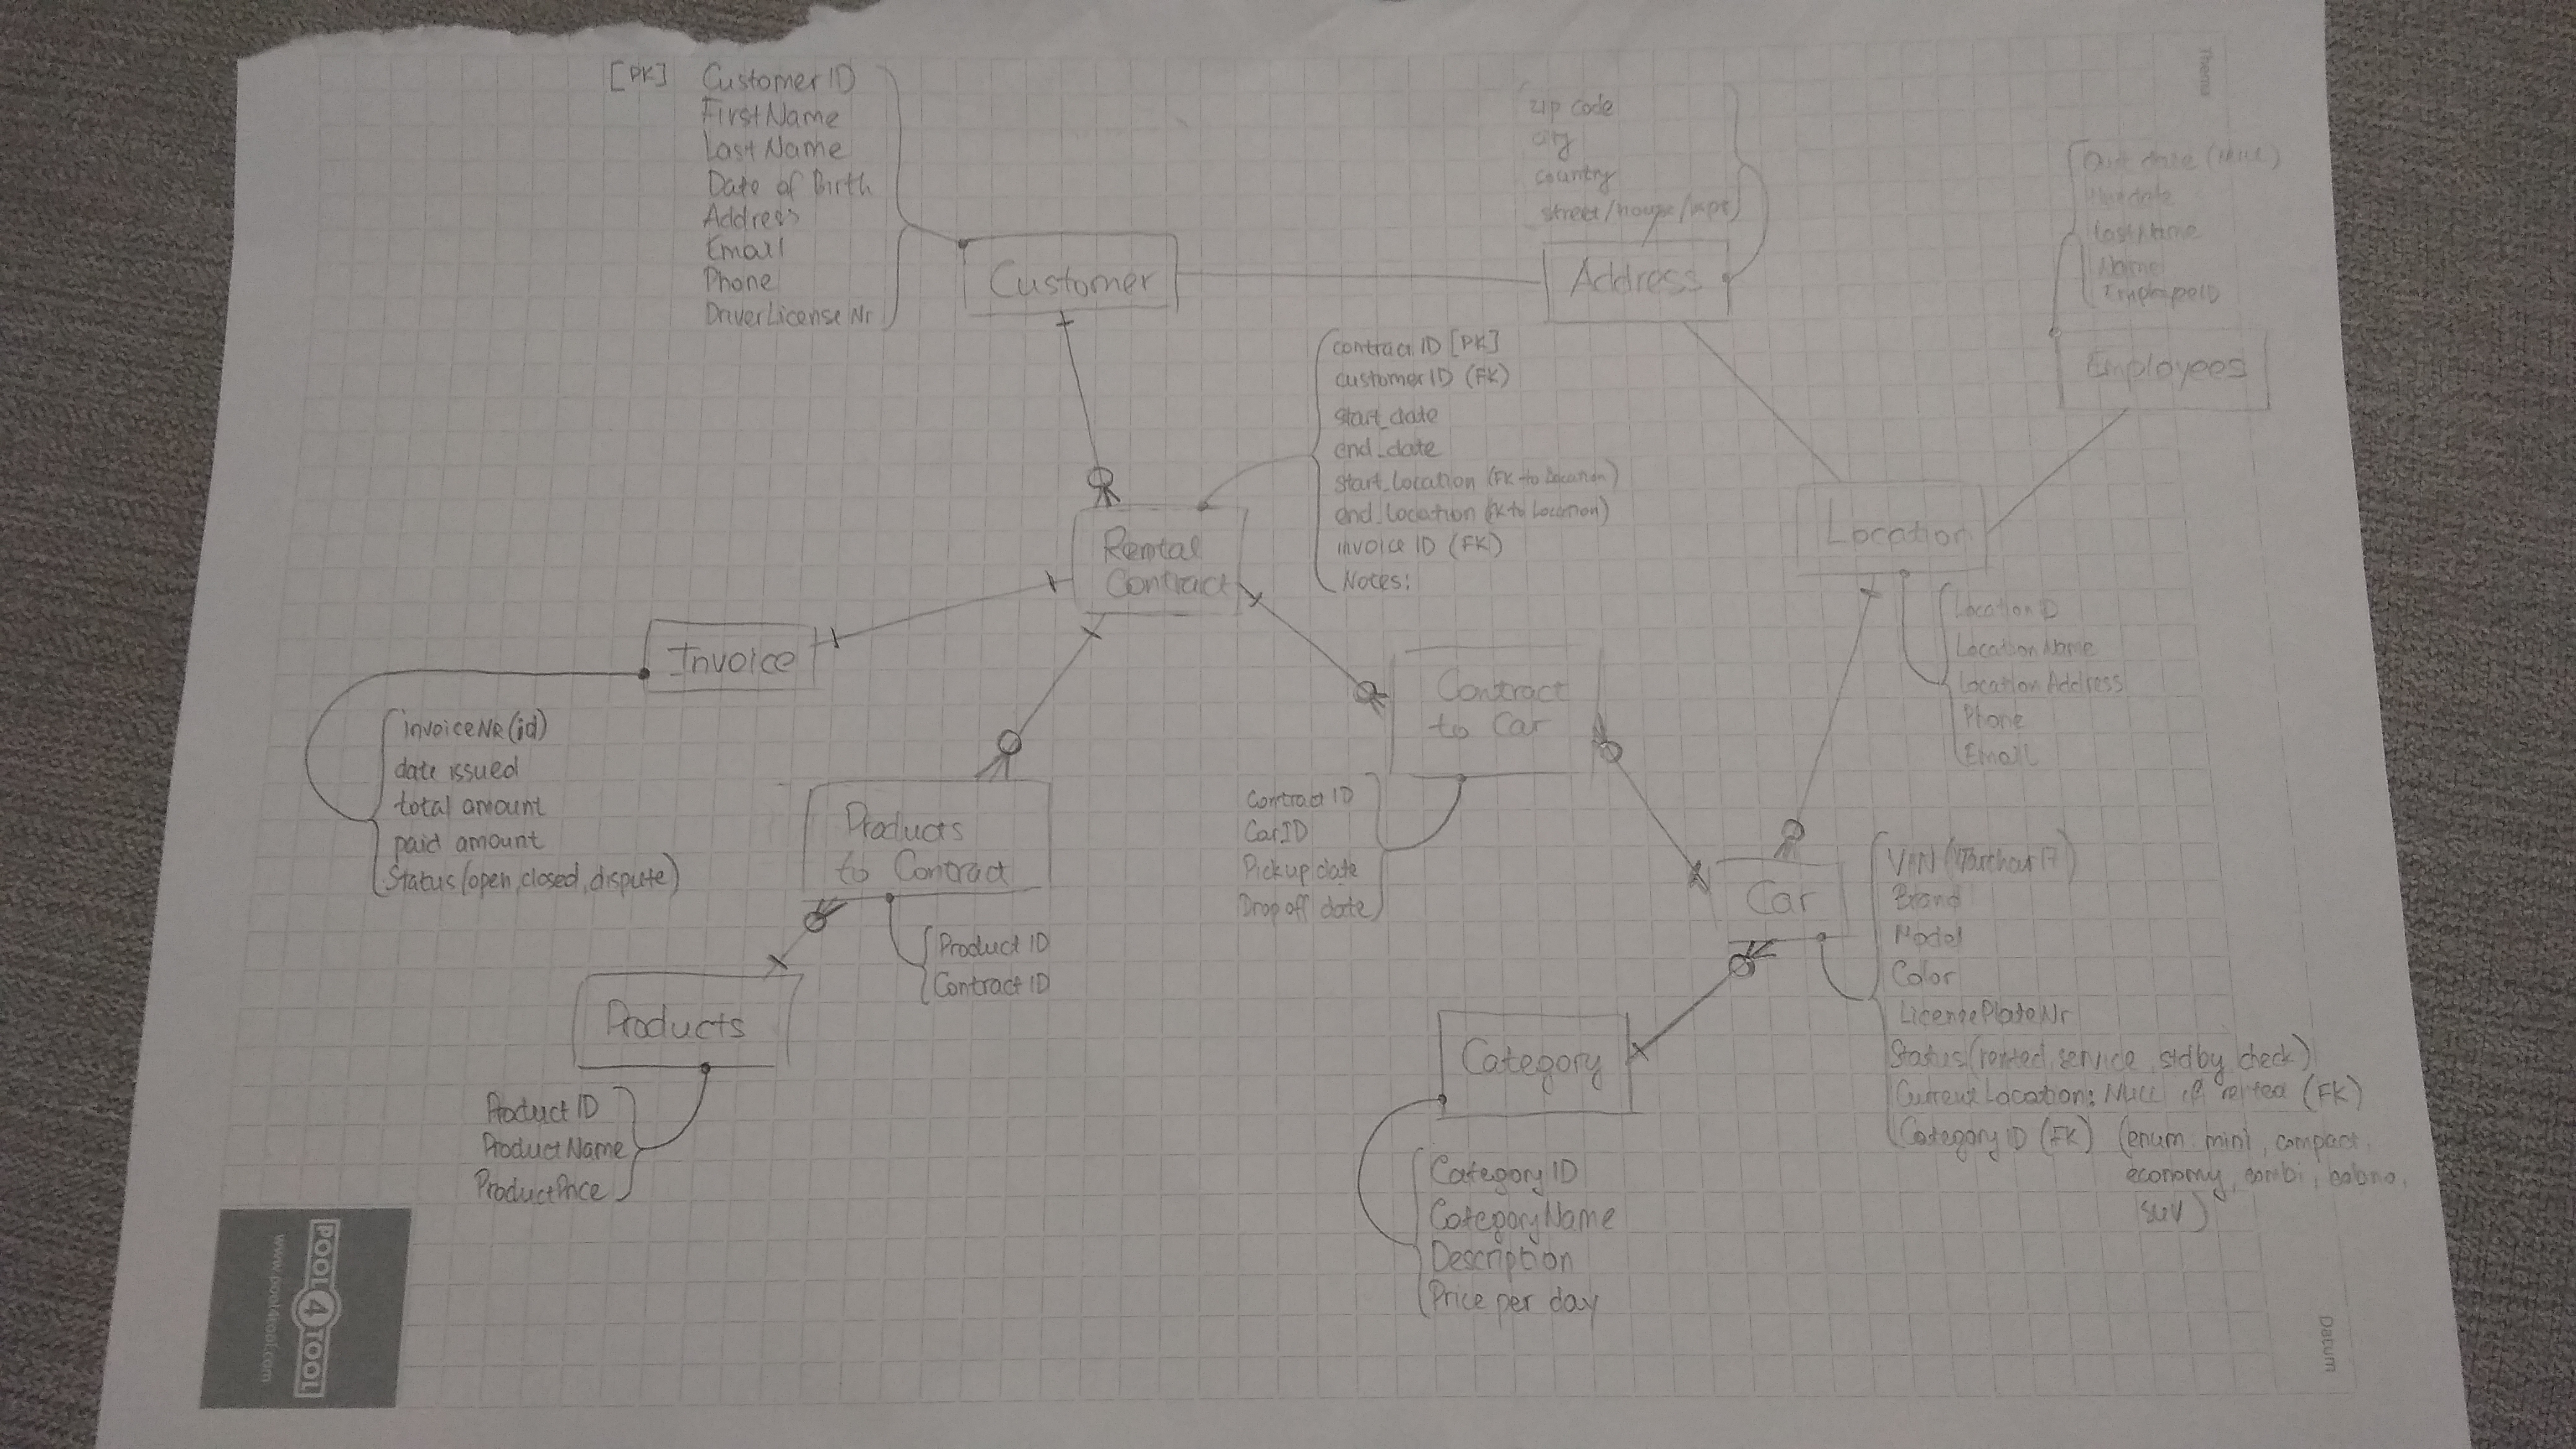 [PK] Customer ID
FirstName
Last Name
Date of Birth
Address
Email
Phone
DriverLicense Nr
Customer
zip code
city
country
street/house/apt
Address
Thema
(NULL)
LastName
Name
EmployeeID
Employees
contract ID [PK]
customer ID (FK)
start_date
end_date
start_location (FK to Location)
end_location (FK to Location)
invoice ID (FK)
Notes:
Rental
Contract
Location
LocationID
LocationName
Location Address
Phone
Email
Invoice
invoiceNR (id)
date issued
total amount
paid amount
Status (open, closed, dispute)
Contract
to Car
Contract ID
CarID
Pickup date
Drop off date
Products
to Contract
Product ID
Contract ID
Products
Product ID
ProductName
ProductPrice
Car
Brand
Model
Color
LicensePlateNr
Status (rented, service, stdby, check)
Current Location: NULL if rented (FK)
Category ID (FK) (enum: mini, compact,
economy, combi, cabrio,
SUV)
Category
Category ID
CategoryName
Description
Price per day
POOL4TOOL
www.pool4tool.com
Datum